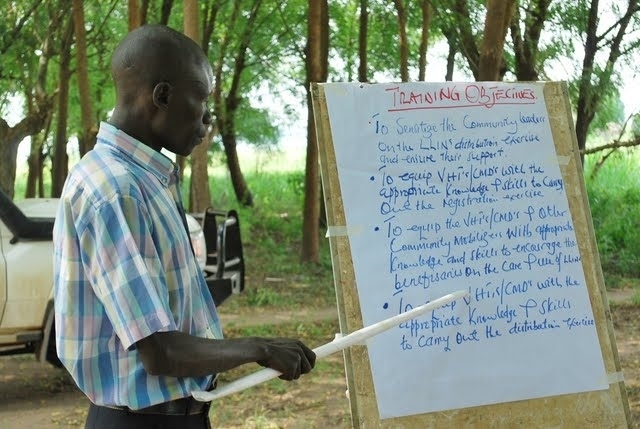 TRAINING OBJECTIVES
To Sensitize the Community leaders
On the LLIN distribution exercise
and ensure their support.
• To equip VHTs/CMDs with the
appropriate Knowledge & Skills to Carry
Out the registration exercise
• To equip the VHTs/CMD's & Other
Community Mobilizers With appropriate
Knowledge and skills to encourage the
benefisaries On the Care & Use of
• To equip VHTs/CMD's with the
appropriate Knowledge & Skills
to Carry Out the distribution exercise